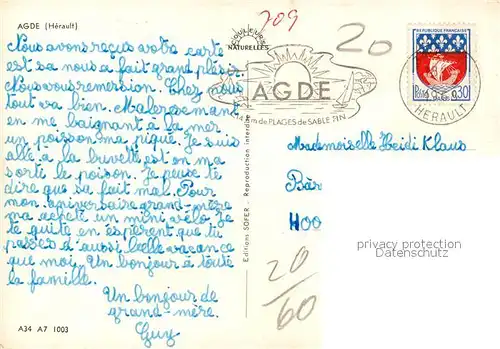 AGDE (Hérault)
709
20
COULEURS
NATURELLES
AGDE
4 Km de PLAGES de SABLE FIN
REPUBLIQUE FRANÇAISE
0,30
HERAULT
Nous avons reçus votre carte
est sa nous a fait grand plaisir.
Nous vous remersion. Chez nous
tout va bien. Malereusement
en me baignant à la mer
un poisson ma piqué. Je suis
allé à la buvette est on ma
sorte le poison. Je peuse te
dire que sa fait mal. Pour
mon aniversaire grand-mère
ma achète un mini vélo. Je
te quite en espèrent que tu
passes d'aussi belle vacance
que moi. Un bonjour à toute
la famille.
Un bonjour de
grand-mère.
Guy
Editions SOFER - Reproduction interdite
Mademoiselle Heidi Klaus
Bär
HOO
privacy protection
Datenschutz
20
60
A34 A7 1003